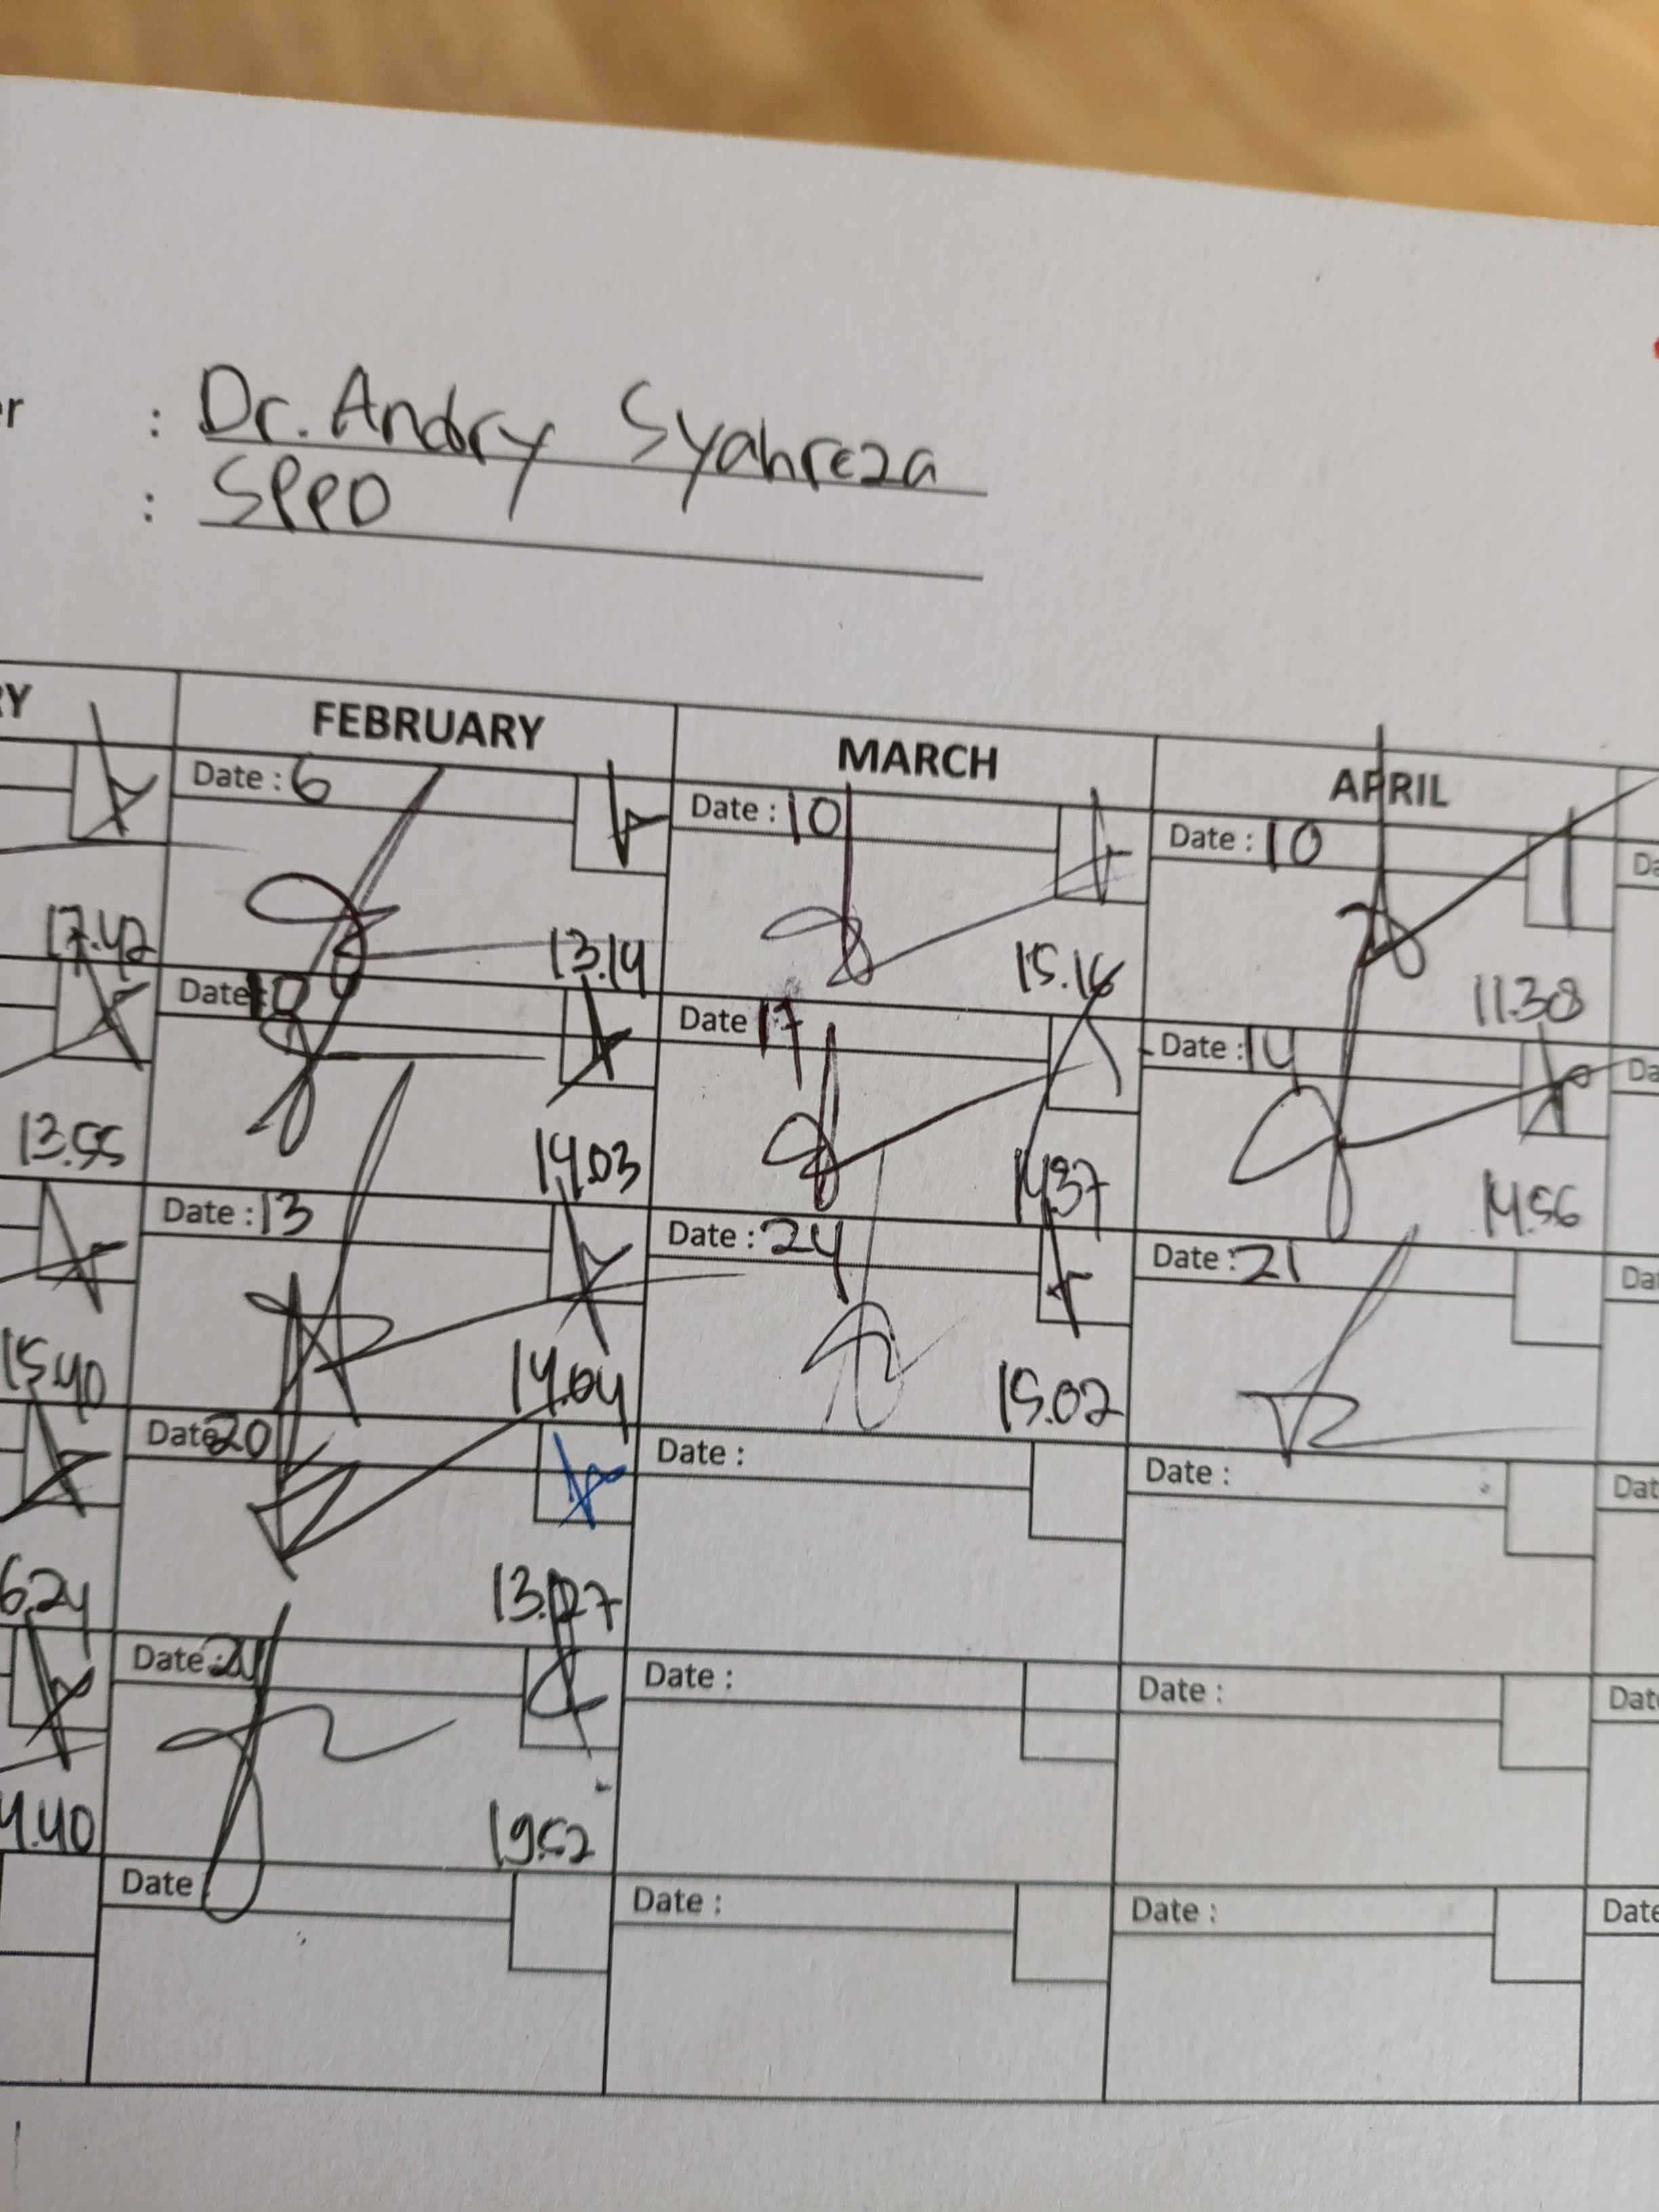 : Dr. Andry Syahreza
: SPPD
FEBRUARY MARCH APRIL
Date : 6 Date : 10 Date : 10
17.42 13.14 15.16 11.38
Date 10 Date 17 Date : 14
13.55 14.03 14.37 14.56
Date : 13 Date : 24 Date : 21
15.40 14.04 15.02
Date 20 Date : Date :
6.24 13.27
Date : 24 Date : Date :
4.40 19.52
Date Date : Date :